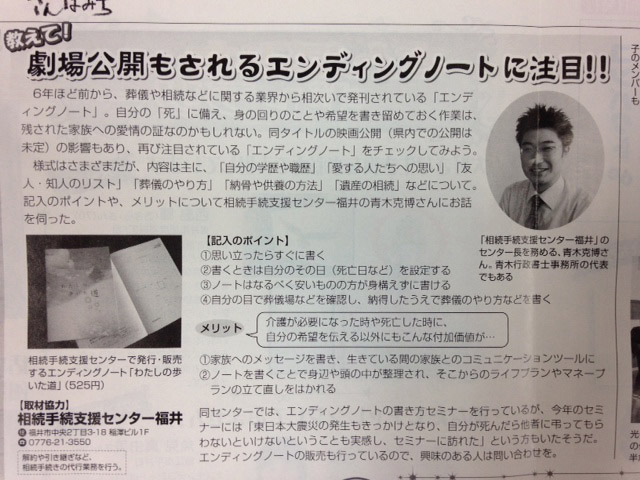 教えて!
劇場公開もされるエンディングノートに注目!!
6年ほど前から、葬儀や相続などに関する業界から相次いで発刊されている「エンデ
ィングノート」。自分の「死」に備え、身の回りのことや希望を書き留めておく作業は、
残された家族への愛情の証なのかもしれない。同タイトルの映画公開(県内での公開は
未定)の影響もあり、再び注目されている「エンディングノート」をチェックしてみよう。
様式はさまざまだが、内容は主に、「自分の学歴や職歴」「愛する人たちへの思い」「友
人・知人のリスト」「葬儀のやり方」「納骨や供養の方法」「遺産の相続」などについて。
記入のポイントや、メリットについて相続手続支援センター福井の青木克博さんにお話
を伺った。
「相続手続支援センター福井」の
センター長を務める、青木克博さ
ん。青木行政書士事務所の代表
でもある
【記入のポイント】
①思い立ったらすぐに書く
②書くときは自分のその日(死亡日など)を設定する
③ノートはなるべく安いものの方が身構えずに書ける
④自分の目で葬儀場などを確認し、納得したうえで葬儀のやり方などを書く
メリット
介護が必要になった時や死亡した時に、
自分の希望を伝える以外にもこんな付加価値が…
①家族へのメッセージを書き、生きている間の家族とのコミュニケーションツールに
②ノートを書くことで身辺や頭の中が整理され、そこからのライフプランやマネープ
ランの立て直しをはかれる
相続手続支援センターで発行・販売
するエンディングノート「わたしの歩
いた道」(525円)
【取材協力】
相続手続支援センター福井
福井市中央2丁目3-18 稲澤ビル1F
0776-21-3550
解約や引き継ぎなど、
相続手続きの代行業務を行う。
同センターでは、エンディングノートの書き方セミナーを行っているが、今年のセミ
ナーには「東日本大震災の発生もきっかけとなり、自分が死んだら他者に弔ってもら
わないといけないということも実感し、セミナーに訪れた」という方もいたそうだ。
エンディングノートの販売も行っているので、興味のある人は問い合わせを。
子のメンバーも